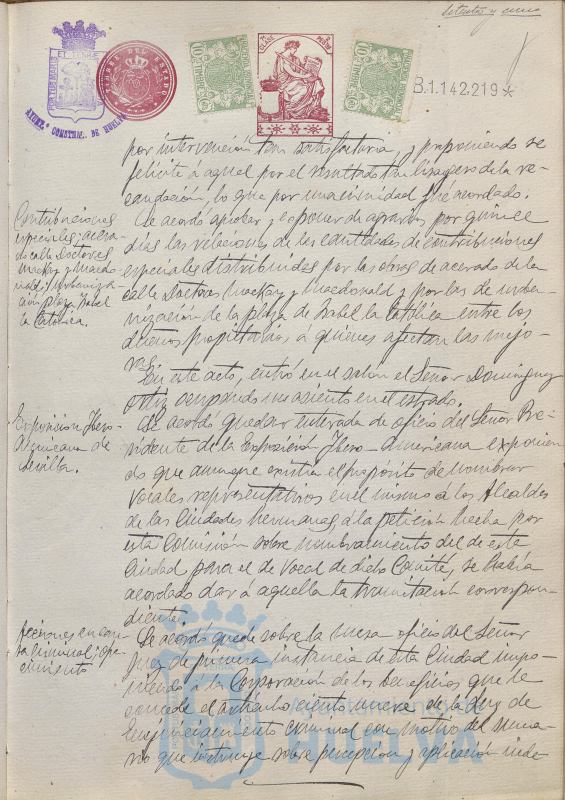 setenta y cinco
AYUNT.º CONSTNAL. DE HUELVA
TIMBRE DEL ESTADO
CLASE
B.1.142.219*
por intervención tan satisfactoria, y proponiendo se
felicite á aquel por el resultado tan lisonjero de la re-
caudación, lo que por unanimidad fué acordado.
Contribuciones
especiales; acera-
do calle Doctores
Mackay y Macdo-
nald; urbaniza-
ción plaza Isabel
la Católica.
Se acordó aprobar y exponer de agravios por quince
días las relaciones de las cantidades de contribuciones
especiales distribuidas por las obras de acerado de la
calle Doctores Mackay y Macdonald y por las de urba-
nización de la plaza de Isabel la Católica entre los
dueños propietarios á quienes afectan las mejo-
ras.
En este acto, entró en el salón el Señor Domínguez
Ortiz ocupando su asiento en el estrado.
Exposición Ibero-
Americana de
Sevilla.
Se acordó quedar enterada de oficio del Señor Pre-
sidente de la Exposición Ibero-Americana exponien-
do que aunque existía el propósito de nombrar
Vocales representativos en el mismo á los Alcaldes
de las Ciudades hermanas á la petición hecha por
esta Comisión sobre nombramiento del de esta
Ciudad para el de Vocal de dicho Comité, se había
acordado dar á aquella la tramitación correspon-
diente.
Acciones en cau-
sa criminal; ofre-
cimiento
Se acordó quede sobre la mesa oficio del Señor
Juez de primera instancia de esta Ciudad impo-
niendo á la Corporación de los beneficios que le
concede el artículo ciento nueve de la Ley de
Enjuiciamiento criminal con motivo del suma-
rio que instruye sobre percepción y aplicación inde-
HUELVA